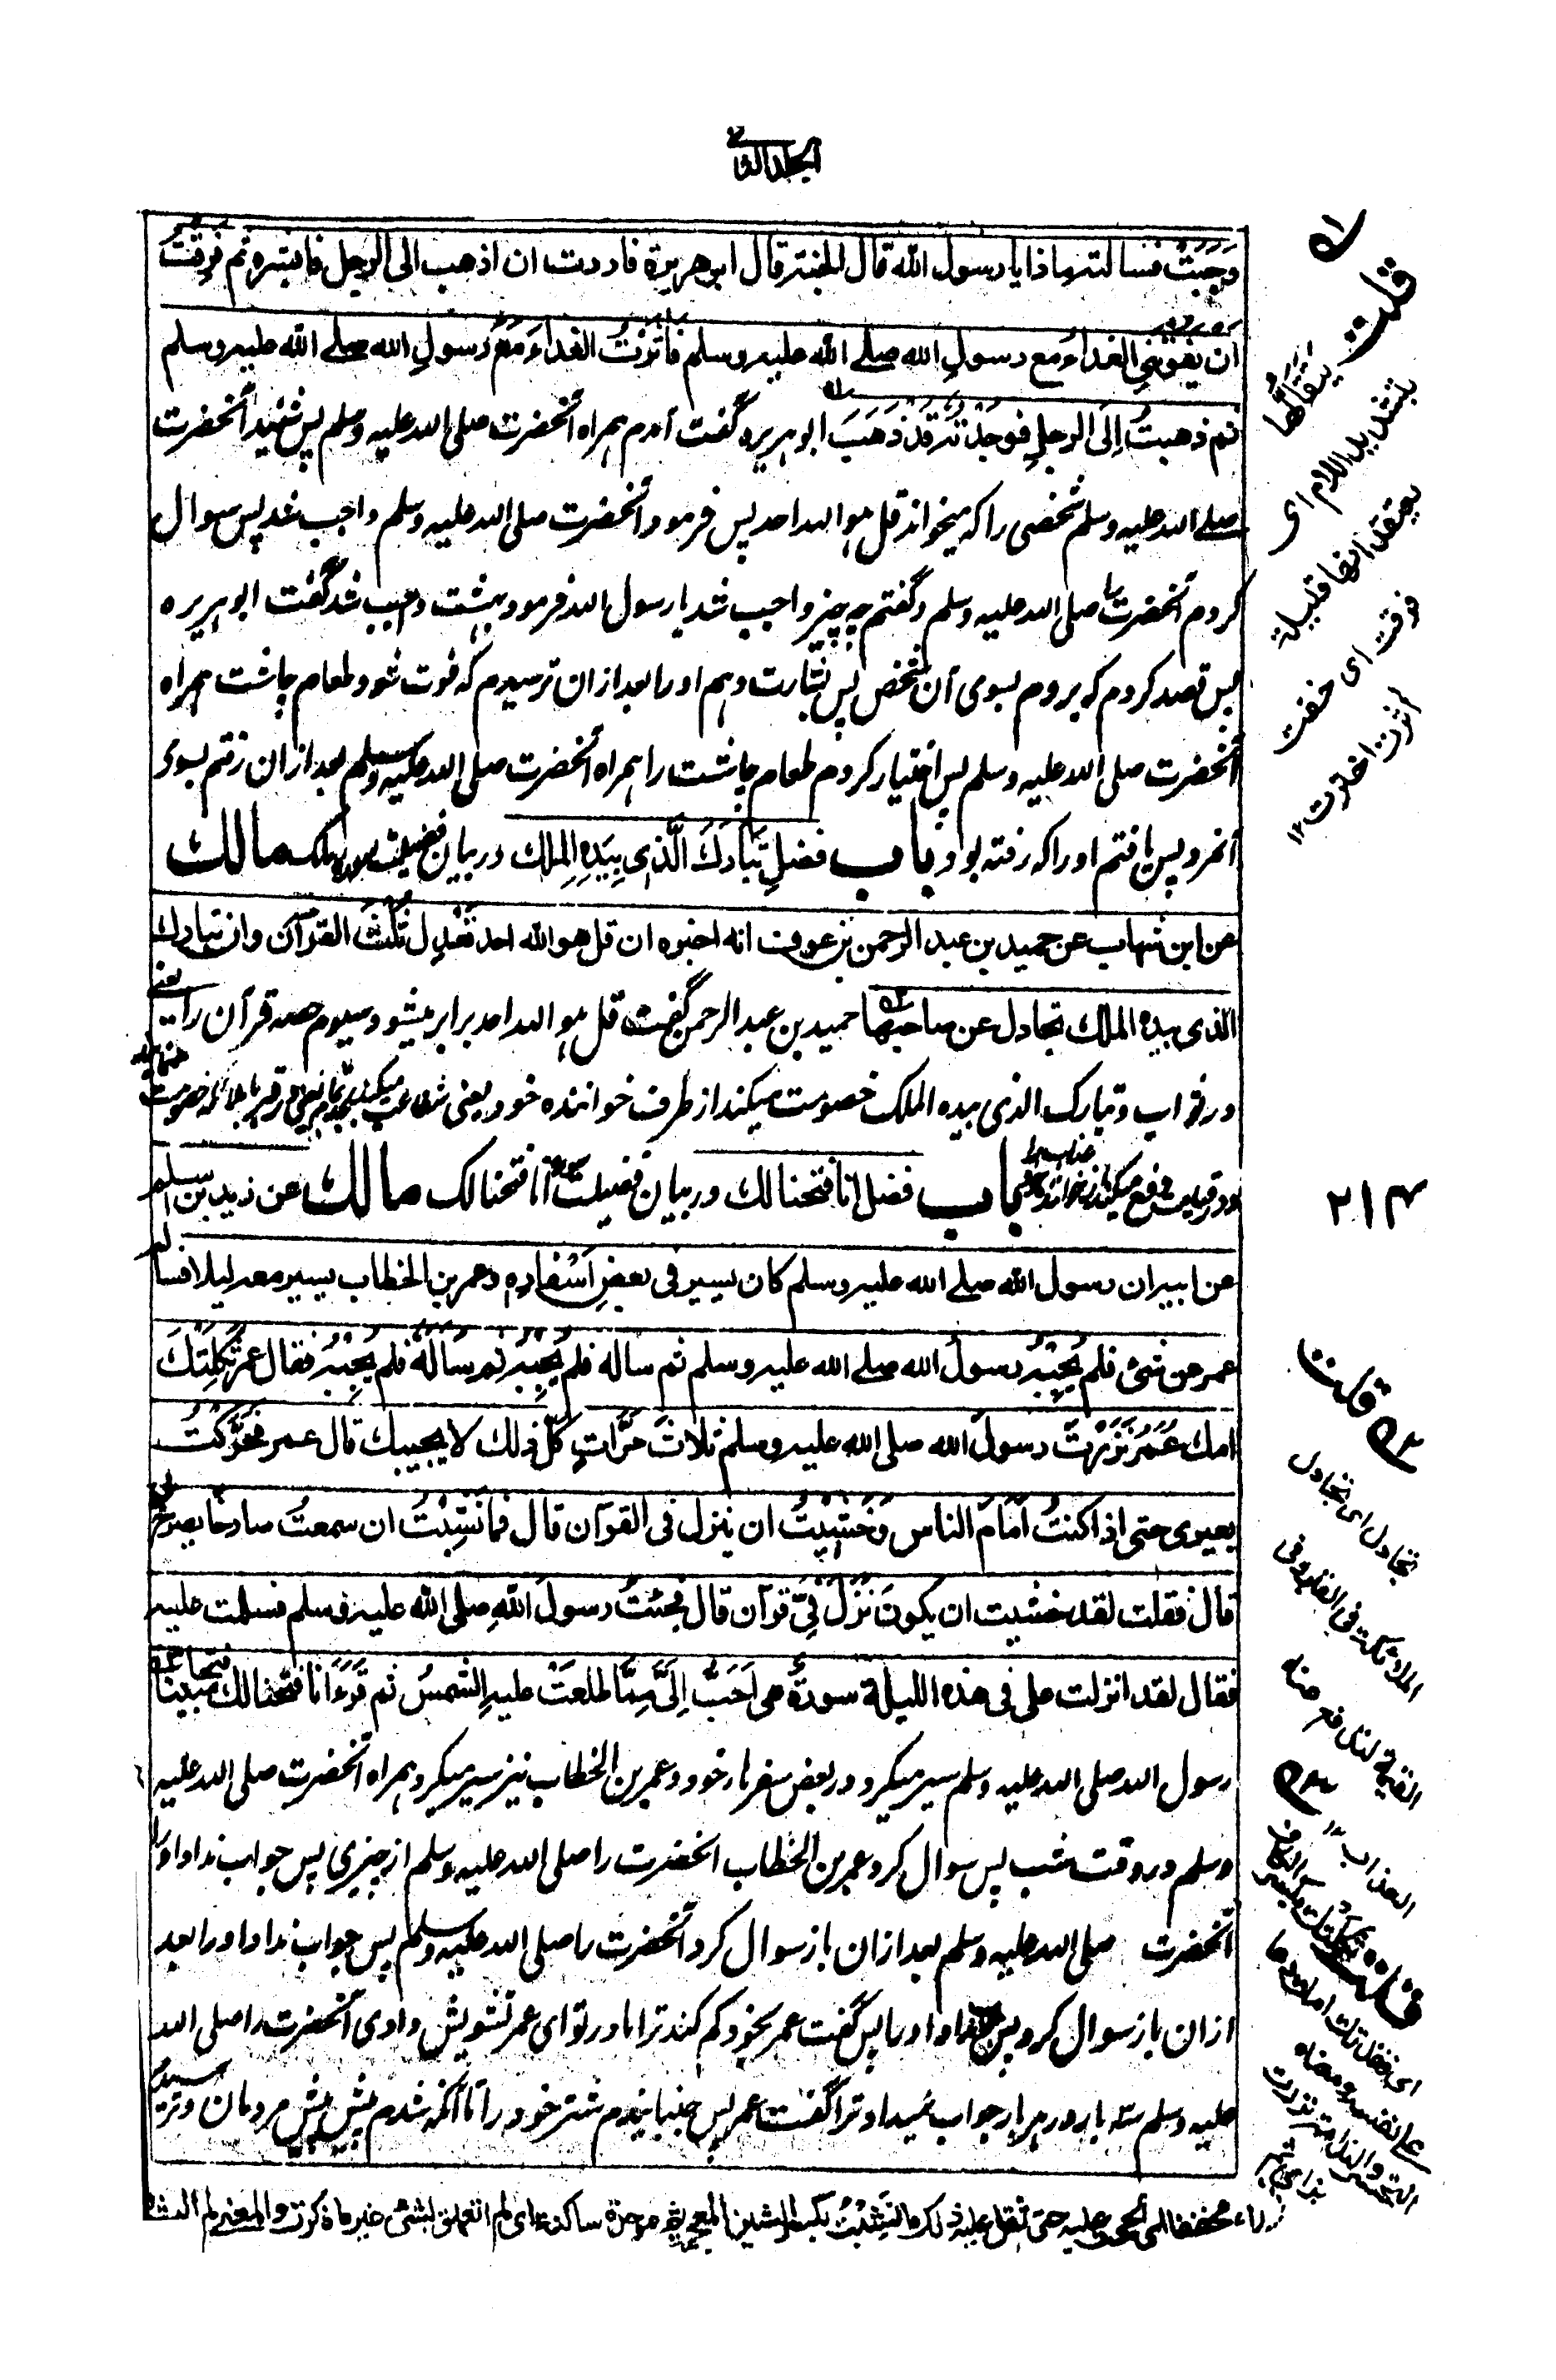 الجلد الثانی
وَجَبَتْ فسالته ماذا یا رسول الله قال الجنة قال ابو هریرة فاردت ان اذهب الی الرجل فابشره ثم فَرِقتُ
ان یفوتنی الغداءُ مع رسولِ الله صلے الله علیه وسلم فآثرتُ الغداءَ مَعَ رسولِ الله صلے الله علیه وسلم
ثم ذهبتُ اِلَی الرجلِ فوجدتُه قد ذهَبَ ابو ہریرہ گفت آمدم ہمراہ آنحضرت صلی اللہ علیہ وسلم پس شنید آنحضرت
صلے اللہ علیہ وسلم شخصی را کہ میخواند قل ہو اللہ احد پس فرمود آنحضرت صلی اللہ علیہ وسلم واجب شد پس سوال
کردم آنحضرت را صلی اللہ علیہ وسلم و گفتم چہ چیز واجب شد یا رسول اللہ فرمود بہشت واجب شد گفت ابو ہریرہ
پس قصد کردم کہ بروم بسوی آن شخص پس بشارت دہم او را بعد ازان ترسیدم کہ فوت شود طعام چاشت ہمراہ
آنحضرت صلی اللہ علیہ وسلم پس اختیار کردم طعام چاشت را ہمراہ آنحضرت صلی اللہ علیہ وسلم بعد ازان رفتم بسوی
آنمرد پس یافتم او را کہ رفتہ بود باب فضلِ تَبَارَكَ الَّذِی بِیَدِهِ المُلك در بیان فضیلت سورہ ملک مالك
عن ابن شهاب عن حمید بن عبد الرحمن بن عوف انه اخبره ان قل هو الله احد تَعْدِل ثُلُثَ القرآن وان تبارك
الذی بیده الملك تجادل عن صاحبها حمید بن عبد الرحمن گفت قل ہو اللہ احد برابر میشود سیوم حصہ قرآن را یعنے
در ثواب و تبارک الذی بیدہ الملک خصومت میکند از طرف خوانندہ خود یعنی شفاعت میکند
باب فضل انا فتحنا لك در بیان فضیلت سورہ انا فتحنا لک مالك عن زید بن اسلم
عن ابیه ان رسول الله صلے الله علیه وسلم کان یسیر فی بعضِ اَسْفارِه وعمر بن الخطاب یسیر معه لیلا فساله
عمر عن شئ فلم یُجِبْهُ رسولُ الله صلے الله علیه وسلم ثم ساله فلم یُجِبْه ثم سَاَلَهُ فلم یُجِبْهُ فقال عمر ثَكِلَتْكَ
امك عُمَرُ نَزَرْتَ رسولَ الله صلی الله علیه وسلم ثلاثَ مَرَّاتٍ كُلّ ذلك لا یجیبك قال عمر فحَرَّكْتُ
بعیری حتی اذا كنتُ اَمَامَ الناس وَخَشِیْتُ ان ینزل فی القرآن قال فما نَشِبْتُ ان سمعتُ صارخًا یصرخ بی
قال فقلت لقد خشیت ان یكونَ نَزَلَ فِیَّ قرآن قال فجئتُ رسولَ اللهِ صلی الله علیه وسلم فسلمت علیه
فقال لقد انزلت علی فی هذه اللیلة سورةٌ هی اَحَبُّ اِلَیَّ مِمَّا طلعَتْ علیهِ الشمسُ ثم قَرَءَ انا فتحنا لك فتحا مبینا
رسول اللہ صلی اللہ علیہ وسلم سیر میکرد در بعض سفرہا خود و عمر بن الخطاب نیز سیر میکرد ہمراہ آنحضرت صلی اللہ علیہ
وسلم در وقت شب پس سوال کرد عمر بن الخطاب آنحضرت را صلی اللہ علیہ وسلم از چیزی پس جواب نداد او را
آنحضرت صلی اللہ علیہ وسلم بعد ازان باز سوال کرد آنحضرت را صلی اللہ علیہ وسلم پس جواب نداد او را بعد
ازان باز سوال کرد پس جواب نداد او را پس گفت عمر بخود گم کند ترا مادر تو ای عمر تشویش دادی آنحضرت را صلی اللہ
علیہ وسلم سہ بار و ہر بار جواب نمیداد ترا گفت عمر پس جنبانیدم شتر خود را تا آنکہ شدم پیش پیش مردمان و ترسیدم
سله
قلت
یتقالُّها
بتشدید اللام ای
یعتقد انها قلیلة
فرقت ای خفت
اثرت اخترت ۱۲
۲۱۴
قلت
تجادل ای تجادل
الملائكة فی القبر و فی
القیامة لتدفع عنه
العذاب ۱۲
قلت ثكلتك بكسر الكاف
ای فقدتك امك